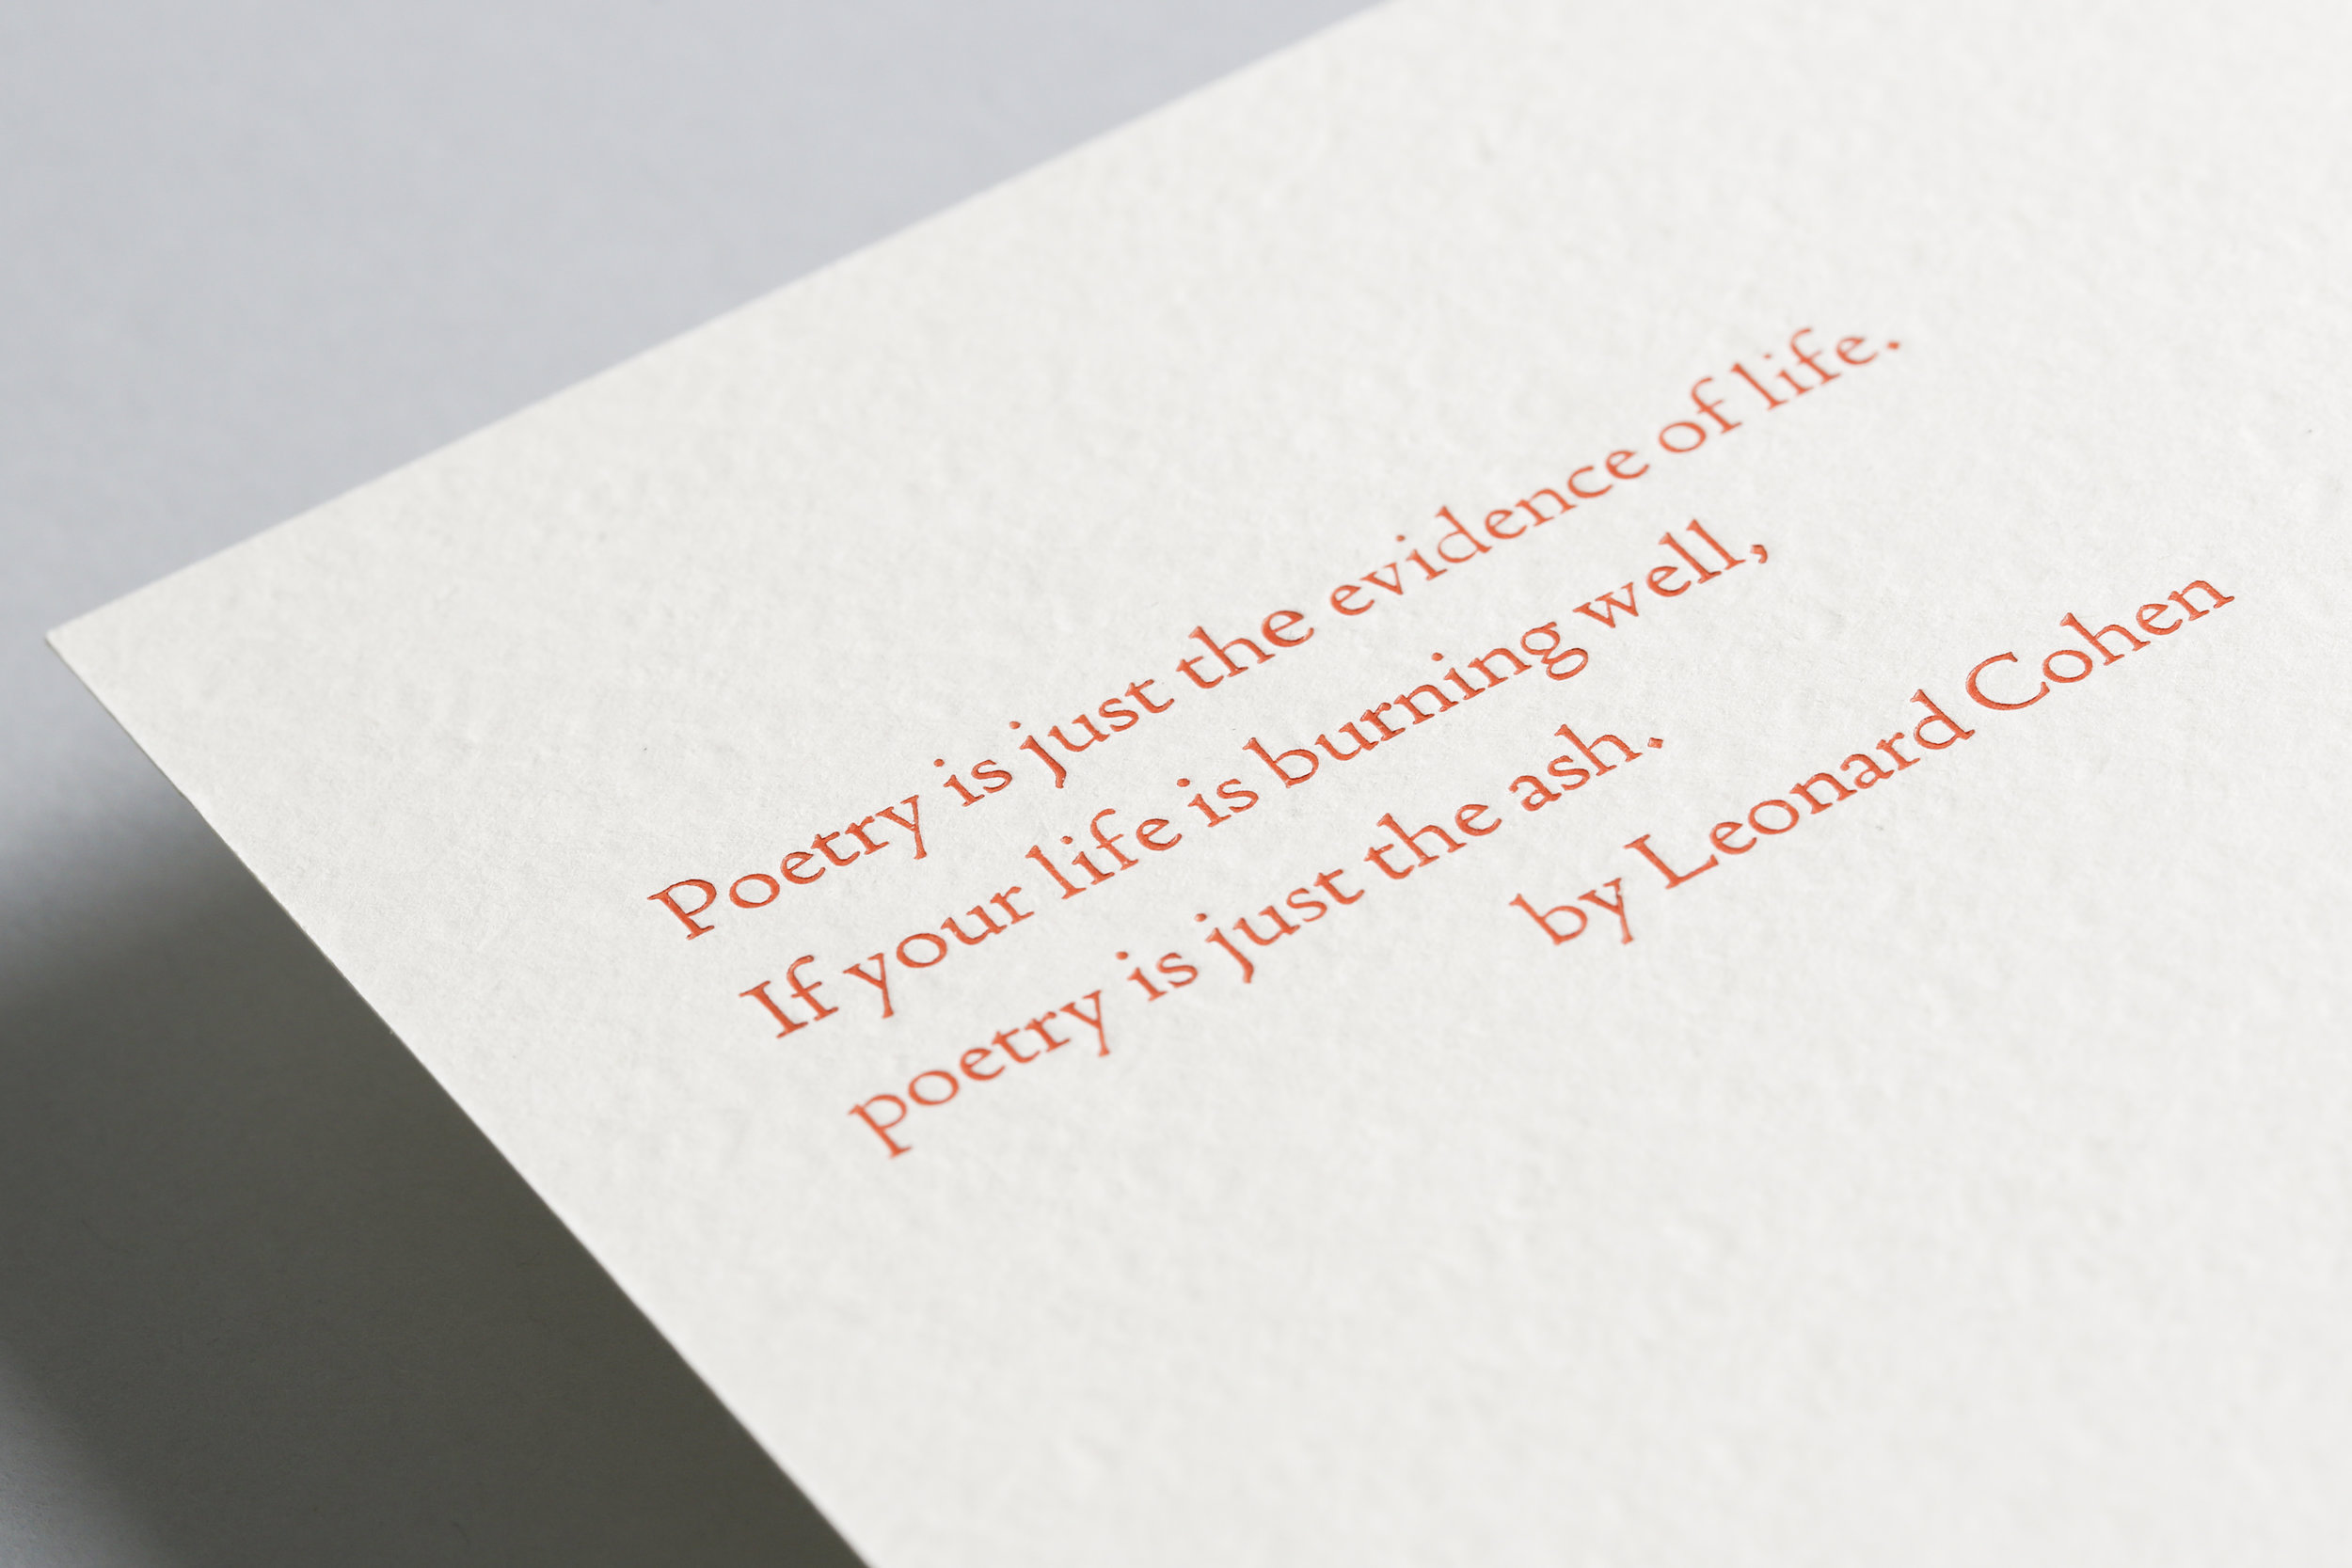 Poetry is just the evidence of life.
If your life is burning well,
poetry is just the ash.
by Leonard Cohen